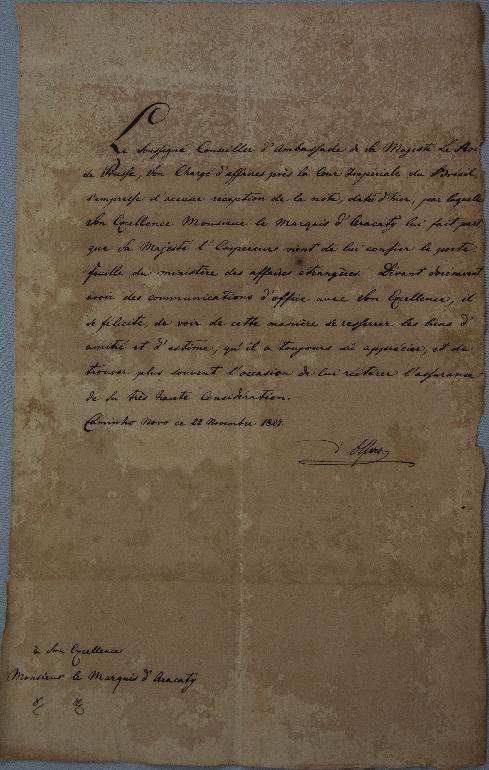 Le soussigné, Conseiller d'Ambassade de Sa Majesté Le Roi
de Prusse, Son Chargé d'affaires près la Cour Impériale du Brésil
s'empresse d'accuser réception de la note, datée d'hier, par laquelle
Son Excellence Monsieur le Marquis d'Aracaty lui fait part
que Sa Majesté l'Empereur vient de lui confier le porte-
feuille du ministère des affaires étrangères. Devant dorénavant
avoir des communications d'office avec Son Excellence, il
se félicite, de voir de cette manière se resserrer les liens d'
amitié et d'estime, qu'il a toujours sû apprécier, et de
trouver plus souvent l'occasion de lui réitérer l'assurance
de sa très haute Considération.
Caminho novo ce 22 Novembre 1827.
d'Olfers
à Son Excellence
Monsieur le Marquis d'Aracaty